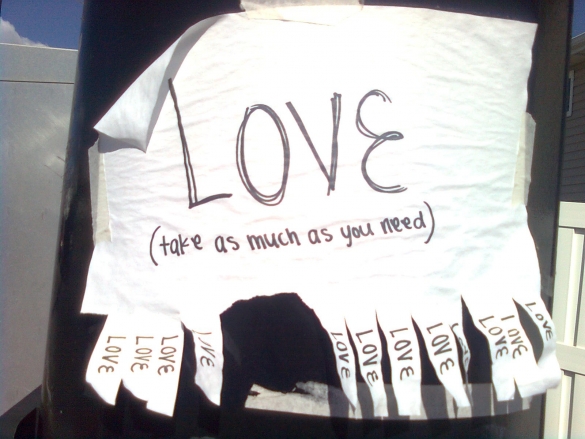 LOVE
(take as much as you need)
LOVE
LOVE
LOVE
LOVE
LOVE
LOVE
LOVE
LOVE
LOVE
LOVE